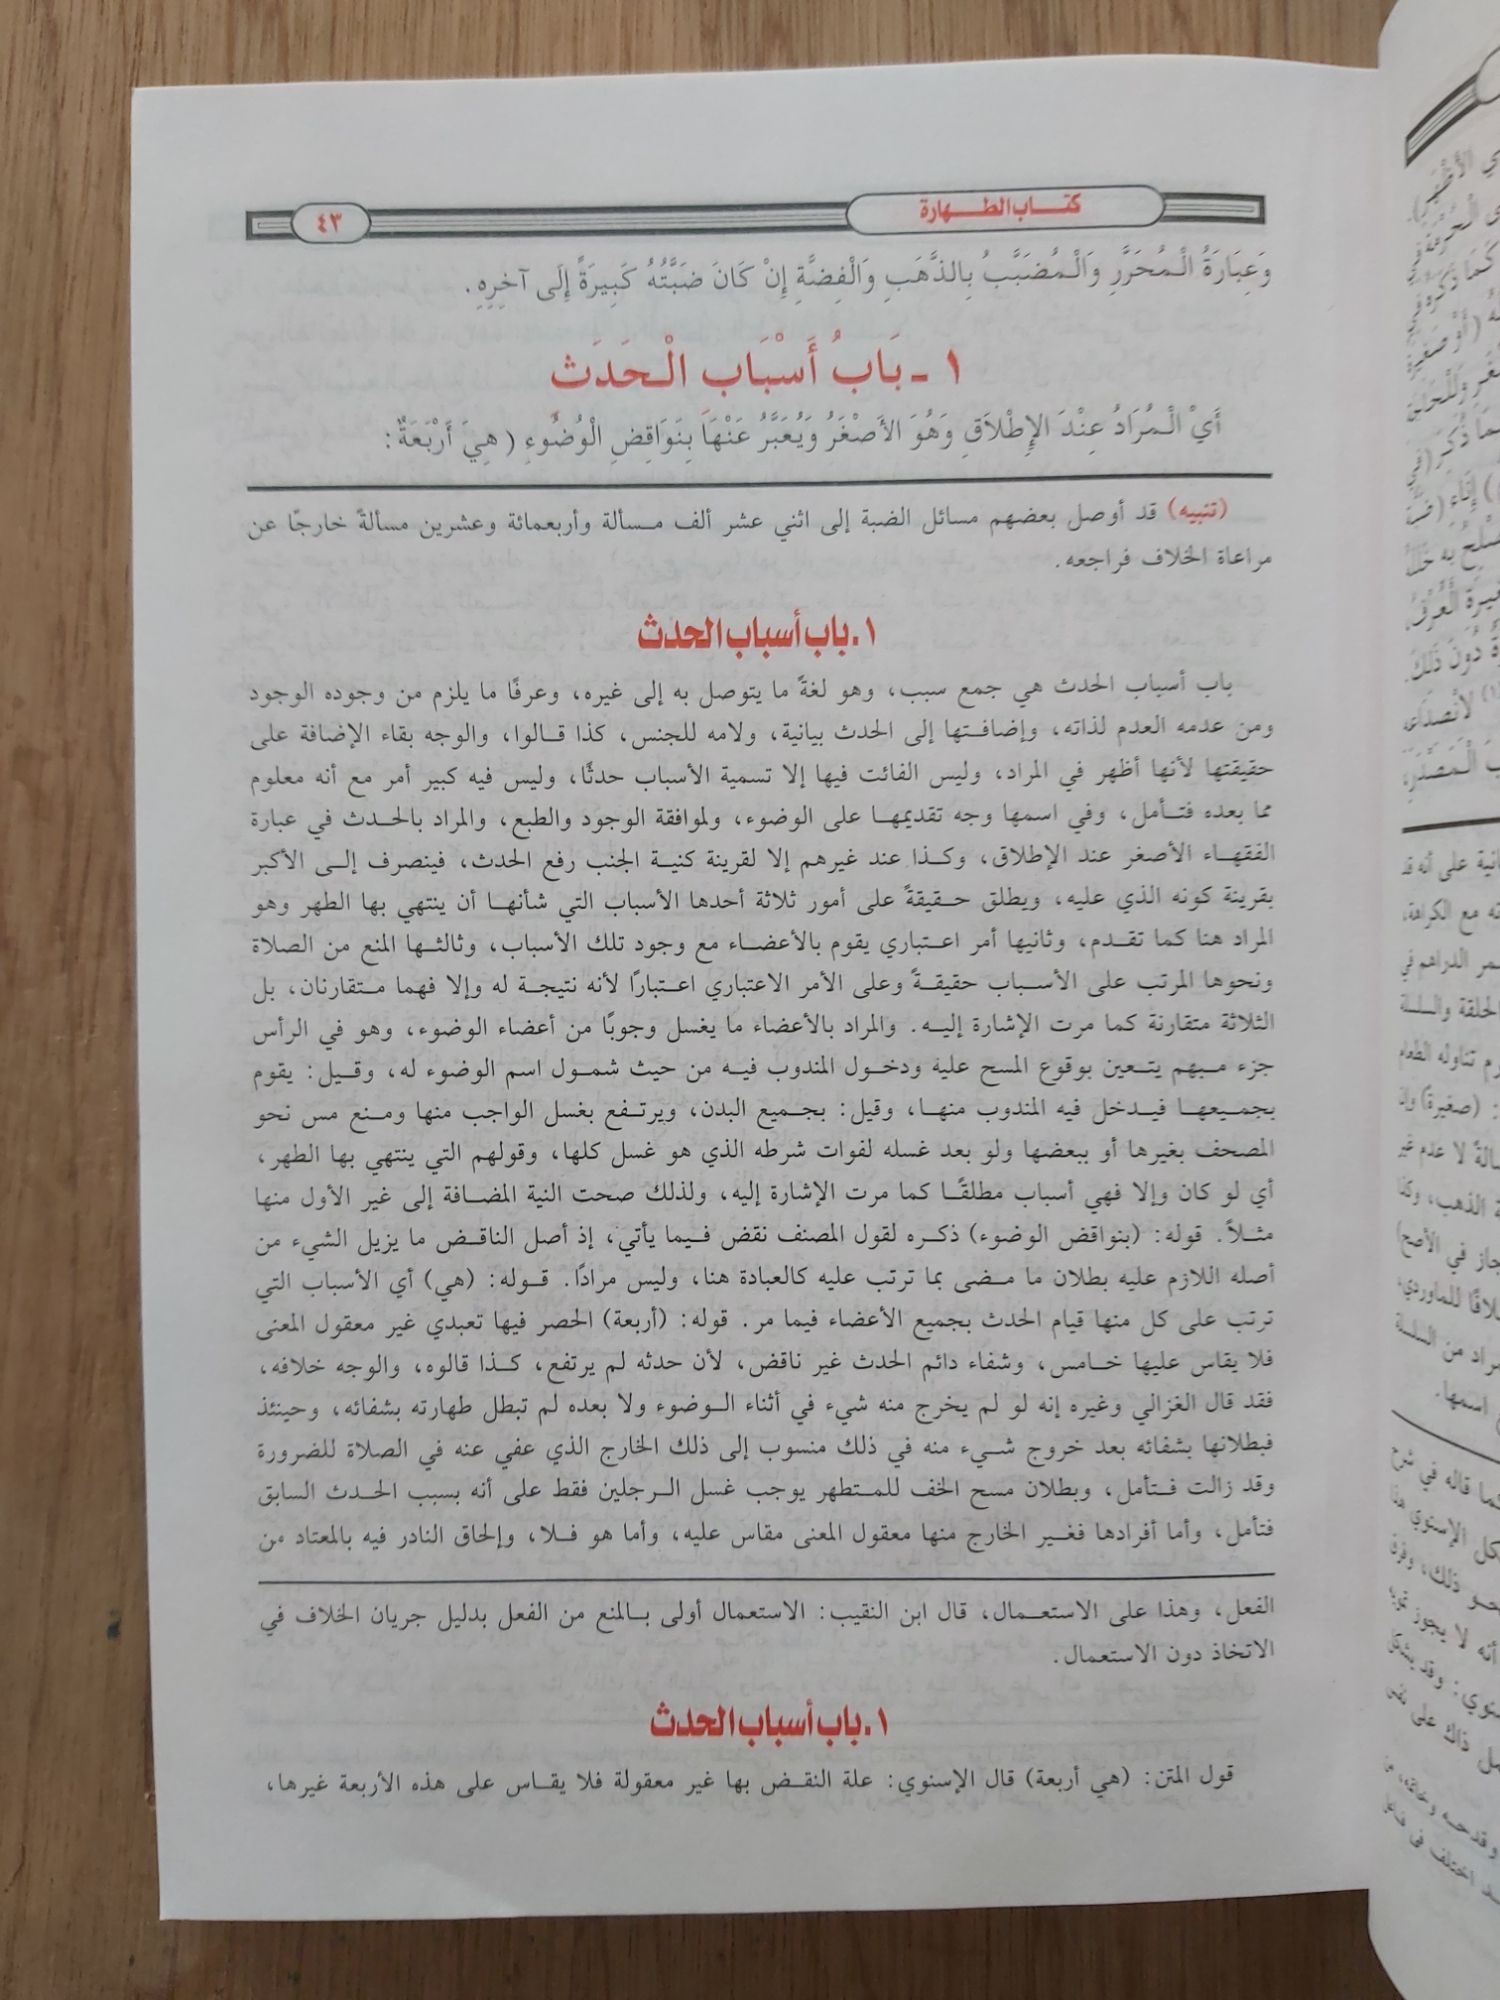 كتاب الطهارة
٤٣
وَعِبَارَةُ الْمُحَرَّرِ وَالْمُضَبَّبُ بِالذَّهَبِ وَالْفِضَّةِ إِنْ كَانَ ضَبَّتُهُ كَبِيرَةً إِلَى آخِرِهِ.
١ - بَابُ أَسْبَابِ الْحَدَثِ
أَيْ الْمُرَادُ عِنْدَ الإِطْلَاقِ وَهُوَ الأَصْغَرُ وَيُعَبَّرُ عَنْهَا بِنَوَاقِضِ الْوُضُوءِ ( هِيَ أَرْبَعَةٌ :
(تنبيه) قد أوصل بعضهم مسائل الضبة إلى اثني عشر ألف مسألة وأربعمائة وعشرين مسألةً خارجًا عن
مراعاة الخلاف فراجعه.
١. باب أسباب الحدث
باب أسباب الحدث هي جمع سبب، وهو لغةً ما يتوصل به إلى غيره، وعرفًا ما يلزم من وجوده الوجود
ومن عدمه العدم لذاته، وإضافتها إلى الحدث بيانية، ولامه للجنس، كذا قالوا، والوجه بقاء الإضافة على
حقيقتها لأنها أظهر في المراد، وليس الفائت فيها إلا تسمية الأسباب حدثًا، وليس فيه كبير أمر مع أنه معلوم
مما بعده فتأمل، وفي اسمها وجه تقديمها على الوضوء، ولموافقة الوجود والطبع، والمراد بالحدث في عبارة
الفقهاء الأصغر عند الإطلاق، وكذا عند غيرهم إلا لقرينة كنية الجنب رفع الحدث، فينصرف إلى الأكبر
بقرينة كونه الذي عليه، ويطلق حقيقةً على أمور ثلاثة أحدها الأسباب التي شأنها أن ينتهي بها الطهر وهو
المراد هنا كما تقدم، وثانيها أمر اعتباري يقوم بالأعضاء مع وجود تلك الأسباب، وثالثها المنع من الصلاة
ونحوها المرتب على الأسباب حقيقةً وعلى الأمر الاعتباري اعتبارًا لأنه نتيجة له وإلا فهما متقارنان، بل
الثلاثة متقارنة كما مرت الإشارة إليه. والمراد بالأعضاء ما يغسل وجوبًا من أعضاء الوضوء، وهو في الرأس
جزء مبهم يتعين بوقوع المسح عليه ودخول المندوب فيه من حيث شمول اسم الوضوء له، وقيل: يقوم
بجميعها فيدخل فيه المندوب منها، وقيل: بجميع البدن، ويرتفع بغسل الواجب منها ومنع مس نحو
المصحف بغيرها أو ببعضها ولو بعد غسله لفوات شرطه الذي هو غسل كلها، وقولهم التي ينتهي بها الطهر،
أي لو كان وإلا فهي أسباب مطلقًا كما مرت الإشارة إليه، ولذلك صحت النية المضافة إلى غير الأول منها
مثلاً. قوله: (بنواقض الوضوء) ذكره لقول المصنف نقض فيما يأتي، إذ أصل الناقض ما يزيل الشيء من
أصله اللازم عليه بطلان ما مضى بما ترتب عليه كالعبادة هنا، وليس مرادًا. قوله: (هي) أي الأسباب التي
ترتب على كل منها قيام الحدث بجميع الأعضاء فيما مر. قوله: (أربعة) الحصر فيها تعبدي غير معقول المعنى
فلا يقاس عليها خامس، وشفاء دائم الحدث غير ناقض، لأن حدثه لم يرتفع، كذا قالوه، والوجه خلافه،
فقد قال الغزالي وغيره إنه لو لم يخرج منه شيء في أثناء الوضوء ولا بعده لم تبطل طهارته بشفائه، وحينئذ
فبطلانها بشفائه بعد خروج شيء منه في ذلك منسوب إلى ذلك الخارج الذي عفي عنه في الصلاة للضرورة
وقد زالت فتأمل، وبطلان مسح الخف للمتطهر يوجب غسل الرجلين فقط على أنه بسبب الحدث السابق
فتأمل، وأما أفرادها فغير الخارج منها معقول المعنى مقاس عليه، وأما هو فلا، وإلحاق النادر فيه بالمعتاد من
الفعل، وهذا على الاستعمال، قال ابن النقيب: الاستعمال أولى بالمنع من الفعل بدليل جريان الخلاف في
الاتخاذ دون الاستعمال.
١. باب أسباب الحدث
قول المتن: (هي أربعة) قال الإسنوي: علة النقض بها غير معقولة فلا يقاس على هذه الأربعة غيرها،